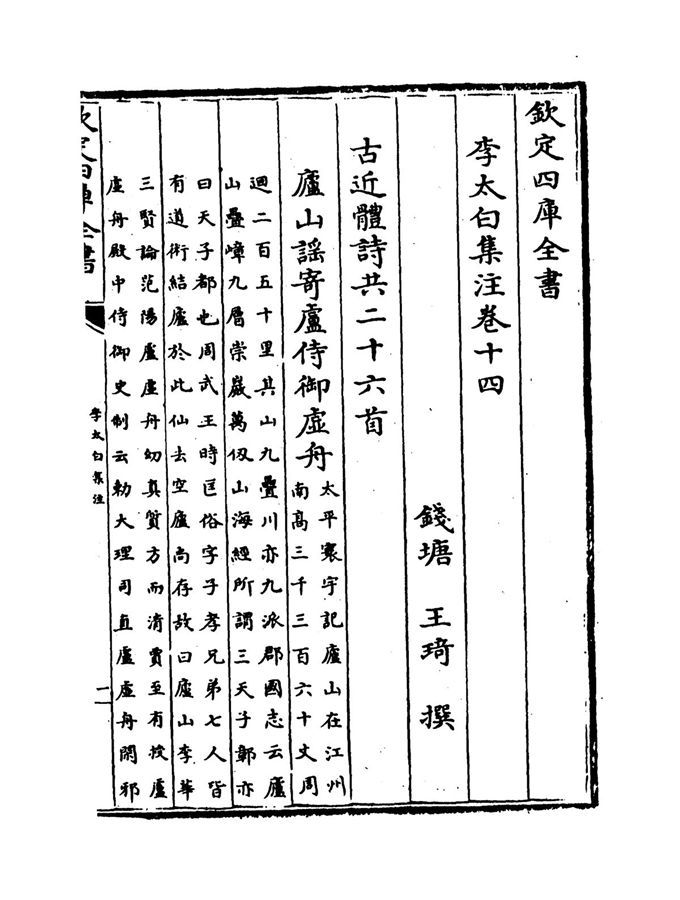 欽定四庫全書
李太白集注卷十四
錢塘 王琦 撰
古近體詩共二十六首
廬山謡寄盧侍御虛舟
太平寰宇記廬山在江州
南高三千三百六十丈周
迴二百五十里其山九疊川亦九派郡國志云廬
山疊嶂九層崇巖萬仭山海經所謂三天子鄣亦
曰天子都也周武王時匡俗字子孝兄弟七人皆
有道術結廬於此仙去空廬尚存故曰廬山李華
三賢論范陽盧虛舟幼真質方而清賈至有授盧
虛舟殿中侍御史制云勅大理司直盧虛舟閑邪
欽定四庫全書
李太白集注
一